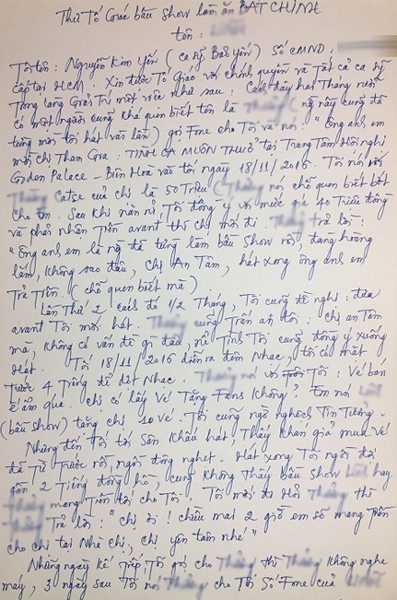 Thư Tố Giác bầu Show làm ăn BẤT CHÍNH
tên:
Tôi tên: Nguyễn Kim Yến (ca sỹ Bảo Yến) Số CMND:
cấp tại HCM. Xin được Tố Giác với chính quyền và Tất cả ca sỹ
Trong làng Giải Trí một việc như sau: Cách đây hai Tháng rưỡi
có một người cũng khá quen biết tên là (ng này cũng đã
từng mời tôi hát vài lần) gọi Fone cho Tôi và nói: "Ông anh em
mời chị Tham Gia: TÌNH CA MUÔN THUỞ tại Trung Tâm Hội nghị
Golden Palace - Biên Hoà vào tối ngày 18/11/2016. Tôi nói với
Catse của chị là 50 Triệu ( nói chỗ quen biết bớt
cho em. Sau khi năn nỉ Tôi đồng ý với mức giá 40 Triệu đồng
và phải nhận Tiền avant thì chị mới đi. trả lời:
"Ông anh em là ng đã từng làm bầu Show rồi, đàng hoàng
lắm, không sao đâu, chị An Tâm, hát xong ông anh em
Trả Tiền. (chỗ quen biết mà)
Lần Thứ 2 cách đó 1/2 Tháng, Tôi cũng đề nghị: đưa
avant Tôi mới hát. cũng Trấn an tôi. chị an Tâm
mà, không có vấn đề gì đâu, nể Tình Tôi cũng đồng ý xuống
Hát. Tối 18/11/2016 diễn ra đêm Nhạc, tôi có mặt
Trước 4 Tiếng để dợt Nhạc. nói với Tôi: Vé bán
ế ẩm quá. chị có lấy Vé Tặng Fans Không? Em nói
(bầu show) tặng chị 20 Vé. Tôi cũng ngờ nghệch Tin Tưởng.
Nhưng đến Tối tới Sân Khấu hát, Thấy khán giả mua vé
đã Từ Trước rồi, ngồi đông nghẹt. Hát xong Tôi ngồi đợi
gần 2 Tiếng đồng hồ, cũng không Thấy bầu Show hay
mang Tiền tới cho Tôi. Tôi mới đi Hỏi thì
Trả lời: "chị ơi! chiều mai 2 giờ em sẽ mang Tiền
cho chị tại Nhà chị, chị yên tâm nhé"
Những ngày kế Tiếp Tôi gọi cho thì không nghe
máy, 3 ngày sau Tôi nói cho Tôi Số Fone của